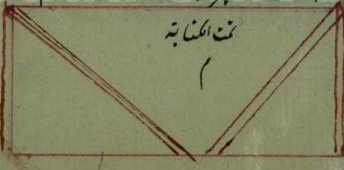 تمت الكتابة
م